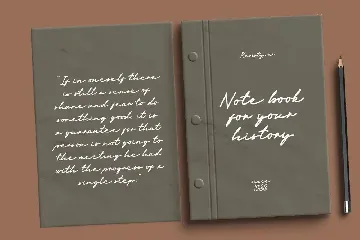 "If in oneself there
is still a sense of
shame and fear to do
something good it is
a guarantee for that
person is not going to
the meeting he had
with the progress of a
single step."
Note book
for your
history
since
1988